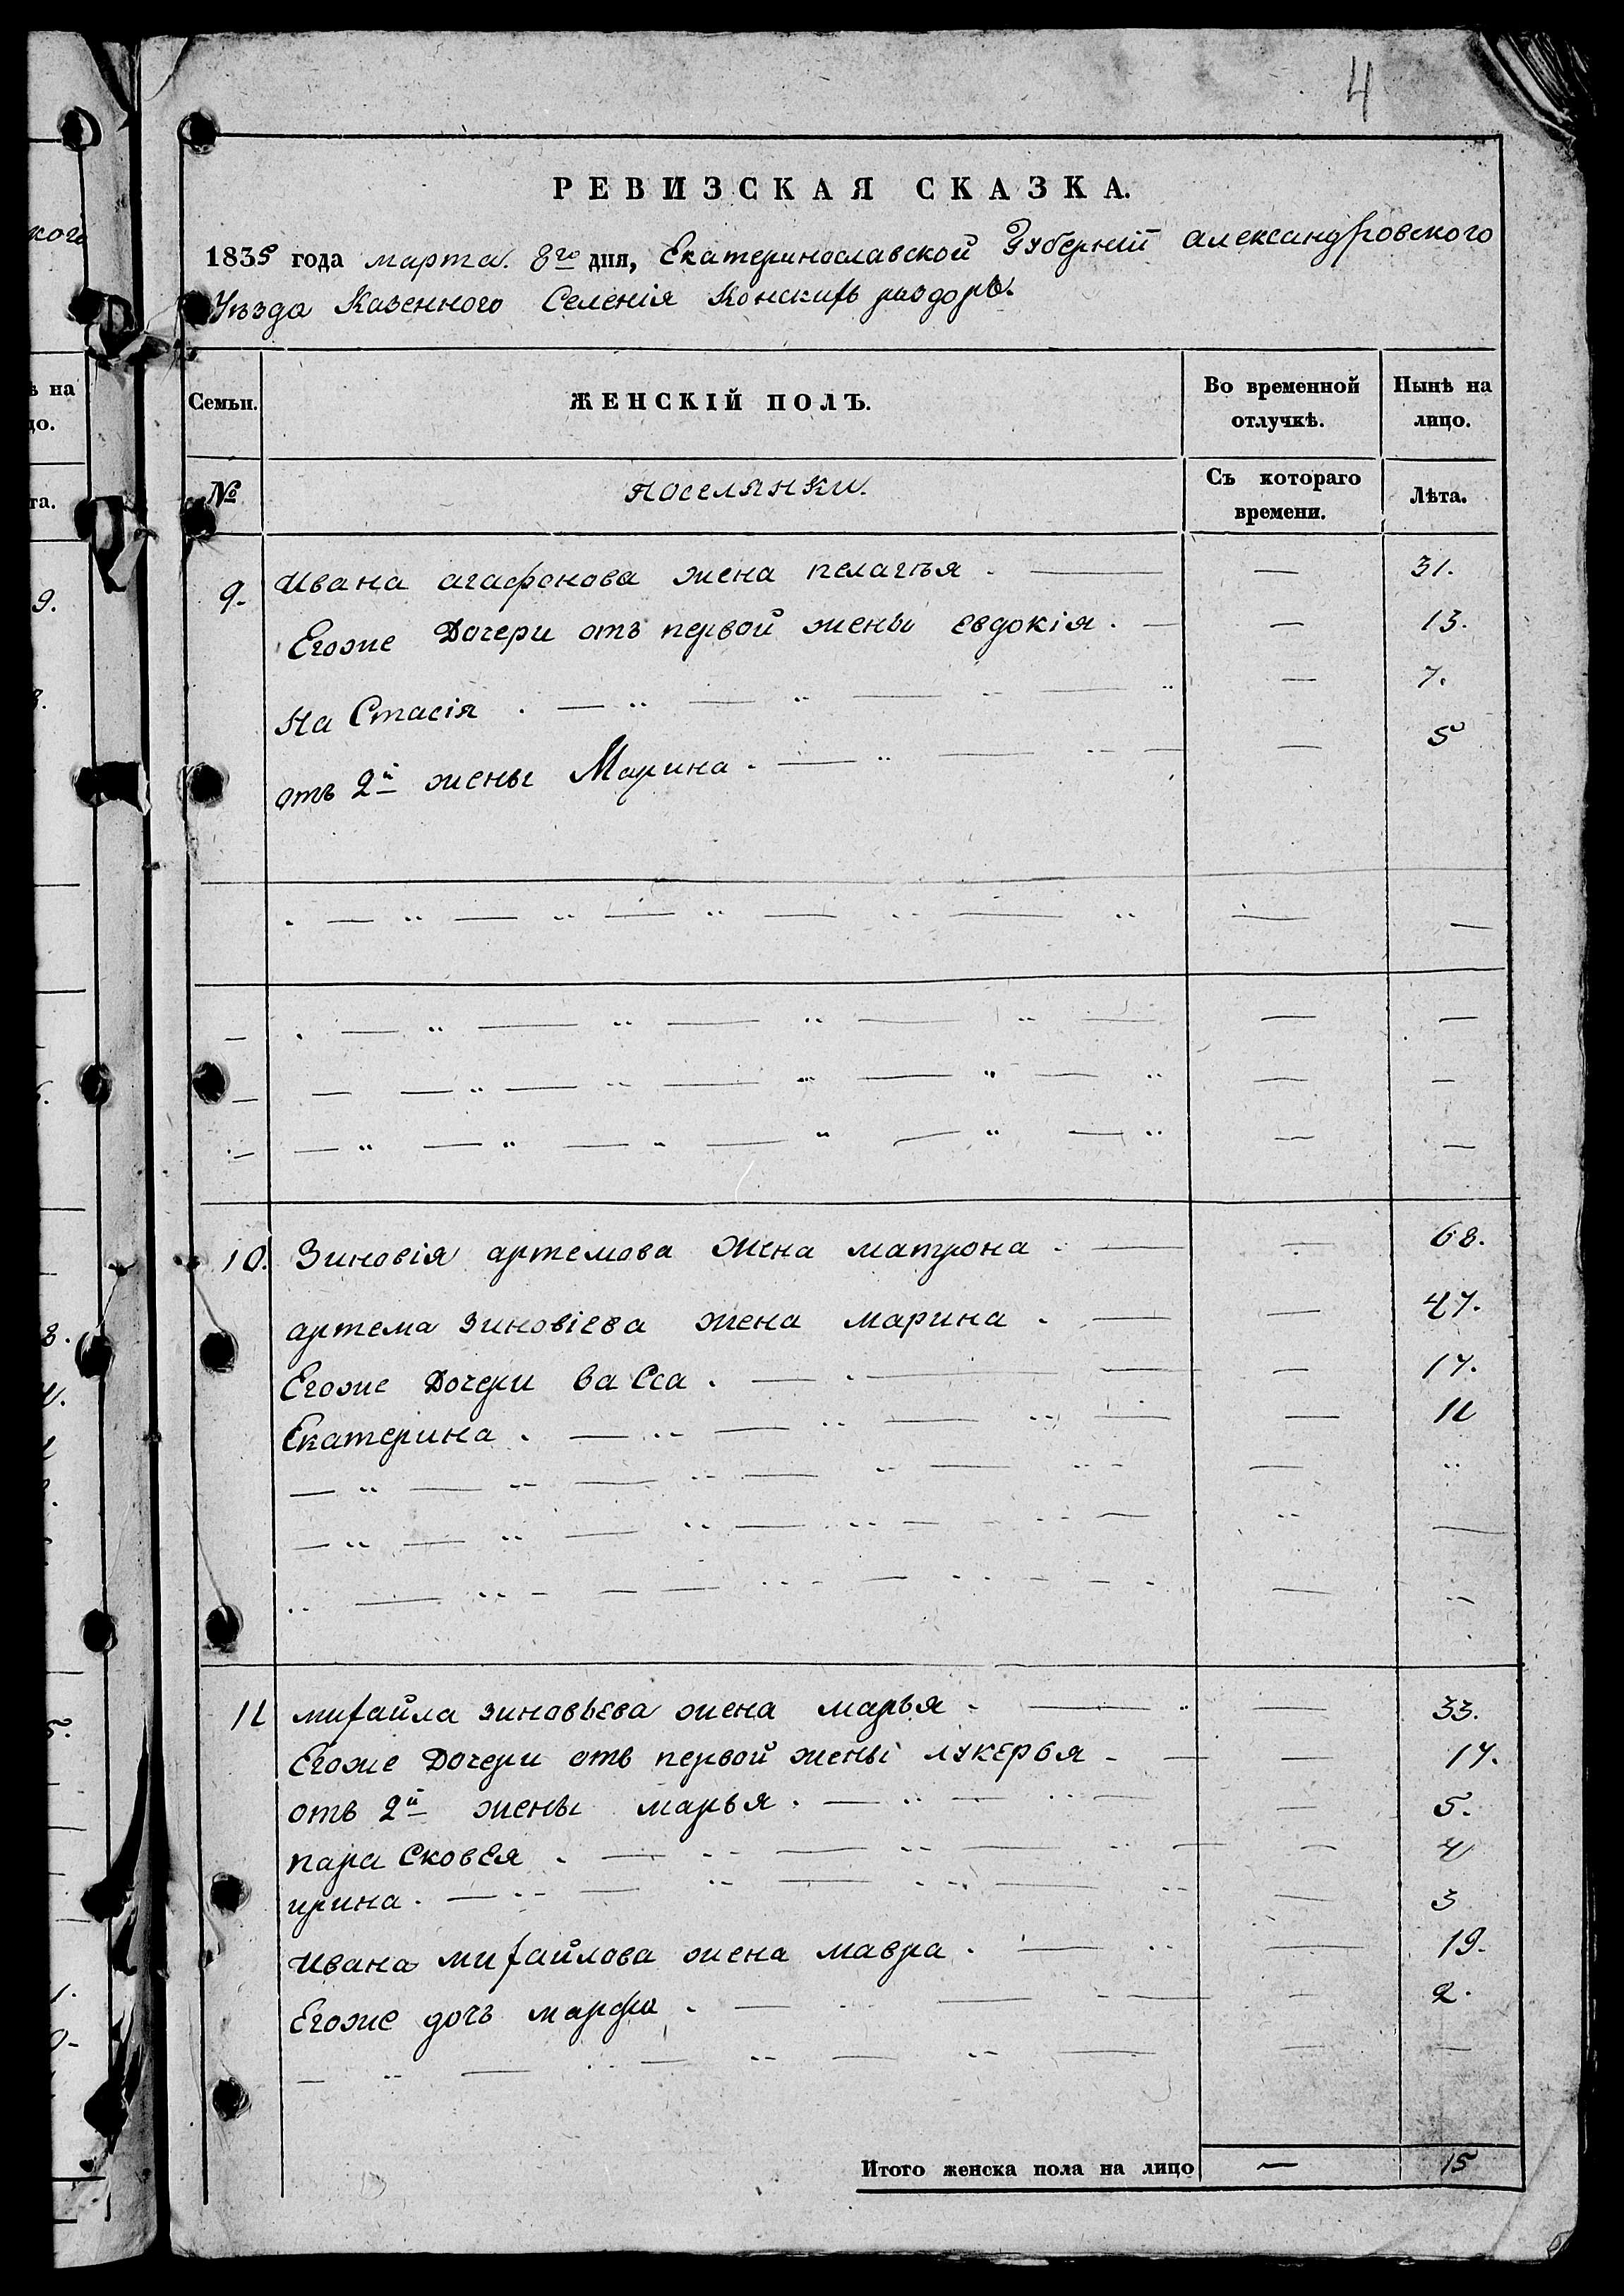 4
РЕВИЗСКАЯ СКАЗКА.
1835 года марта. 8го дня, Екатеринославской Губерніи александровского
Уѣзда Казенного Селенія Конскихъ раздоръ.
Семьи. ЖЕНСКІЙ ПОЛЪ. Во временной отлучкѣ. Нынѣ на лицо.
№ поселянки. Съ котораго времени. Лѣта.
9. Ивана агафонова жена пелагѣя. — — 31.
Егоже Дочери отъ первой жены евдокія. — — 13.
На Стасія. — 7.
отъ 2й жены Марина. — 5
10. Зиновія артемова жена матрона. — — 68.
артема зиновіева жена марина. — — 47.
Егоже Дочери ва Сса. — — 17.
Екатерина. — — 11
11 михайла зиновьева жена марья. — — 33.
Егоже Дочери отъ первой жены лукерья — — 17.
отъ 2й жены марья. — — 5.
пара Сковея. — — 4
ирина. — — 3
ивана михайлова жена мавра. — — 19.
Егоже дочь марфа. — — 2.
Итого женска пола на лицо — 15